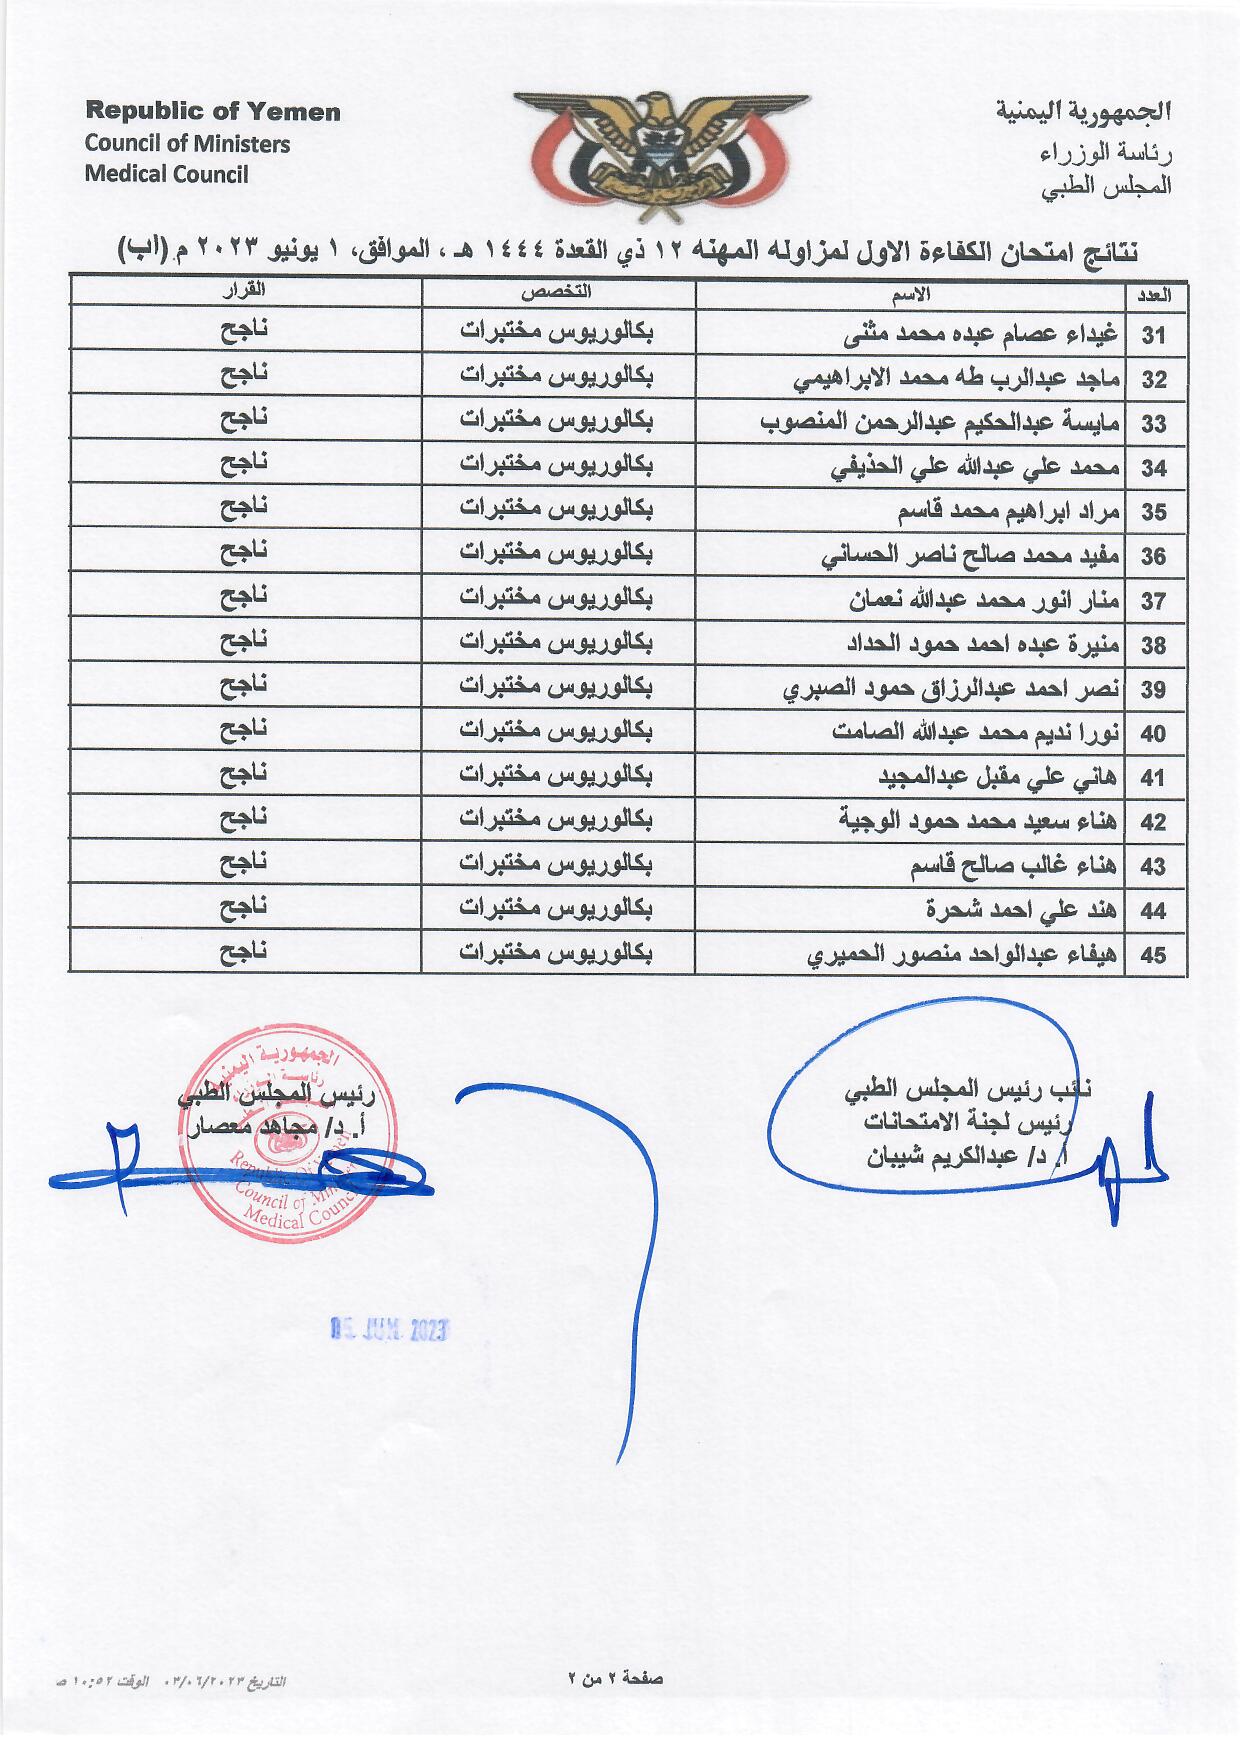 Republic of Yemen
Council of Ministers
Medical Council
الجمهورية اليمنية
رئاسة الوزراء
المجلس الطبي
نتائج امتحان الكفاءة الاول لمزاوله المهنه ١٢ ذي القعدة ١٤٤٤ هـ ، الموافق، ١ يونيو ٢٠٢٣ م (اب)
العدد الاسم التخصص القرار
31 غيداء عصام عبده محمد مثنى بكالوريوس مختبرات ناجح
32 ماجد عبدالرب طه محمد الابراهيمي بكالوريوس مختبرات ناجح
33 مايسة عبدالحكيم عبدالرحمن المنصوب بكالوريوس مختبرات ناجح
34 محمد علي عبدالله علي الحذيفي بكالوريوس مختبرات ناجح
35 مراد ابراهيم محمد قاسم بكالوريوس مختبرات ناجح
36 مفيد محمد صالح ناصر الحساني بكالوريوس مختبرات ناجح
37 منار انور محمد عبدالله نعمان بكالوريوس مختبرات ناجح
38 منيرة عبده احمد حمود الحداد بكالوريوس مختبرات ناجح
39 نصر احمد عبدالرزاق حمود الصبري بكالوريوس مختبرات ناجح
40 نورا نديم محمد عبدالله الصامت بكالوريوس مختبرات ناجح
41 هاني علي مقبل عبدالمجيد بكالوريوس مختبرات ناجح
42 هناء سعيد محمد حمود الوجية بكالوريوس مختبرات ناجح
43 هناء غالب صالح قاسم بكالوريوس مختبرات ناجح
44 هند علي احمد شحرة بكالوريوس مختبرات ناجح
45 هيفاء عبدالواحد منصور الحميري بكالوريوس مختبرات ناجح
نائب رئيس المجلس الطبي
رئيس لجنة الامتحانات
أ. د/ عبدالكريم شيبان
رئيس المجلس الطبي
أ. د/ مجاهد معصار
الجمهورية اليمنية
رئاسة الوزراء
Republic Of Yemen
Council of Minister
Medical Council
05 JUN 2023
صفحة ٢ من ٢
التاريخ ٠٣/٠٦/٢٠٢٣ الوقت ١٠:٥٢ ص